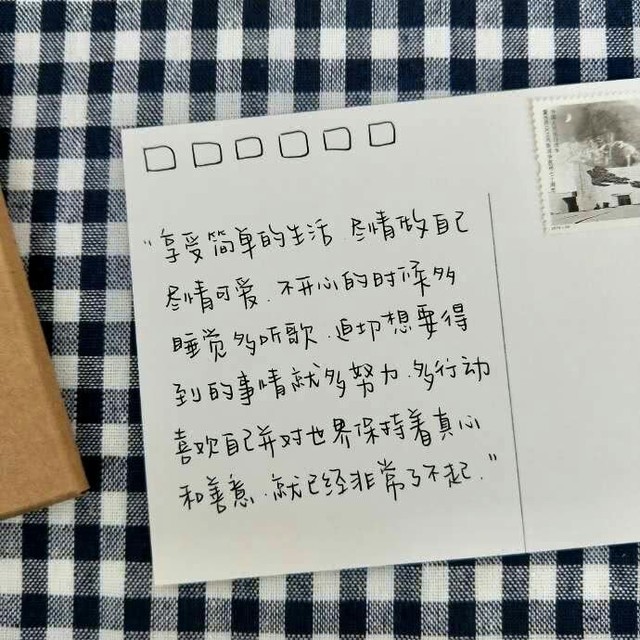 “享受简单的生活.尽情做自己
尽情可爱.不开心的时候多
睡觉多听歌.迫切想要得
到的事情就多努力.多行动
喜欢自己并对世界保持着真心
和善意.就已经非常了不起.”